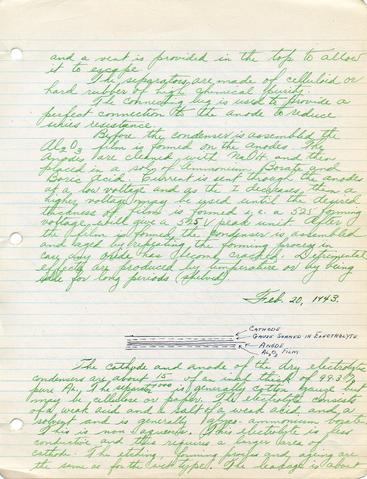 and a vent is provided in the top to allow
it to escape.
The separators are made of celluloid or
hard rubber of high chemical purity.
The connecting lug is used to provide a
perfect connection to the anode to reduce
series resistance.
Before the condenser is assembled the
Al2O3 film is formed on the anodes. The
Anodes are cleaned with NaOH and then
placed in a sol. of Ammonium Borate and
Boric Acid. Current is sent through the anodes
at a low voltage and as the I decreases then a
higher voltage may be used until the desired
thickness of film is formed i.e. a 525 V forming
voltage will give a peak unit. After
the film is formed the condenser is assembled
and aged by repeating the forming process in
case any oxide has become cracked. Detrimental
effects are produced by temperature or by being
idle for long periods (shelved)
Feb. 20, 1943.
CATHODE
GAUZE SOAKED IN ELECTROLYTE
ANODE
Al2O3 FILM
The cathode and anode of the dry electrolytic
condensers are about of an inch thick of 99.3%
pure Al. The separator is generally cotton gauze but
may be cellulose or paper. The electrolyte consists
of a weak acid and a salt of a weak acid and a
solvent and is generally ammonium borate.
This is non aqueous. This electrolyte is less
conductive and this requires a larger area of
cathode. The etching, forming process and ageing are
the same as for the wet type. The leakage is about